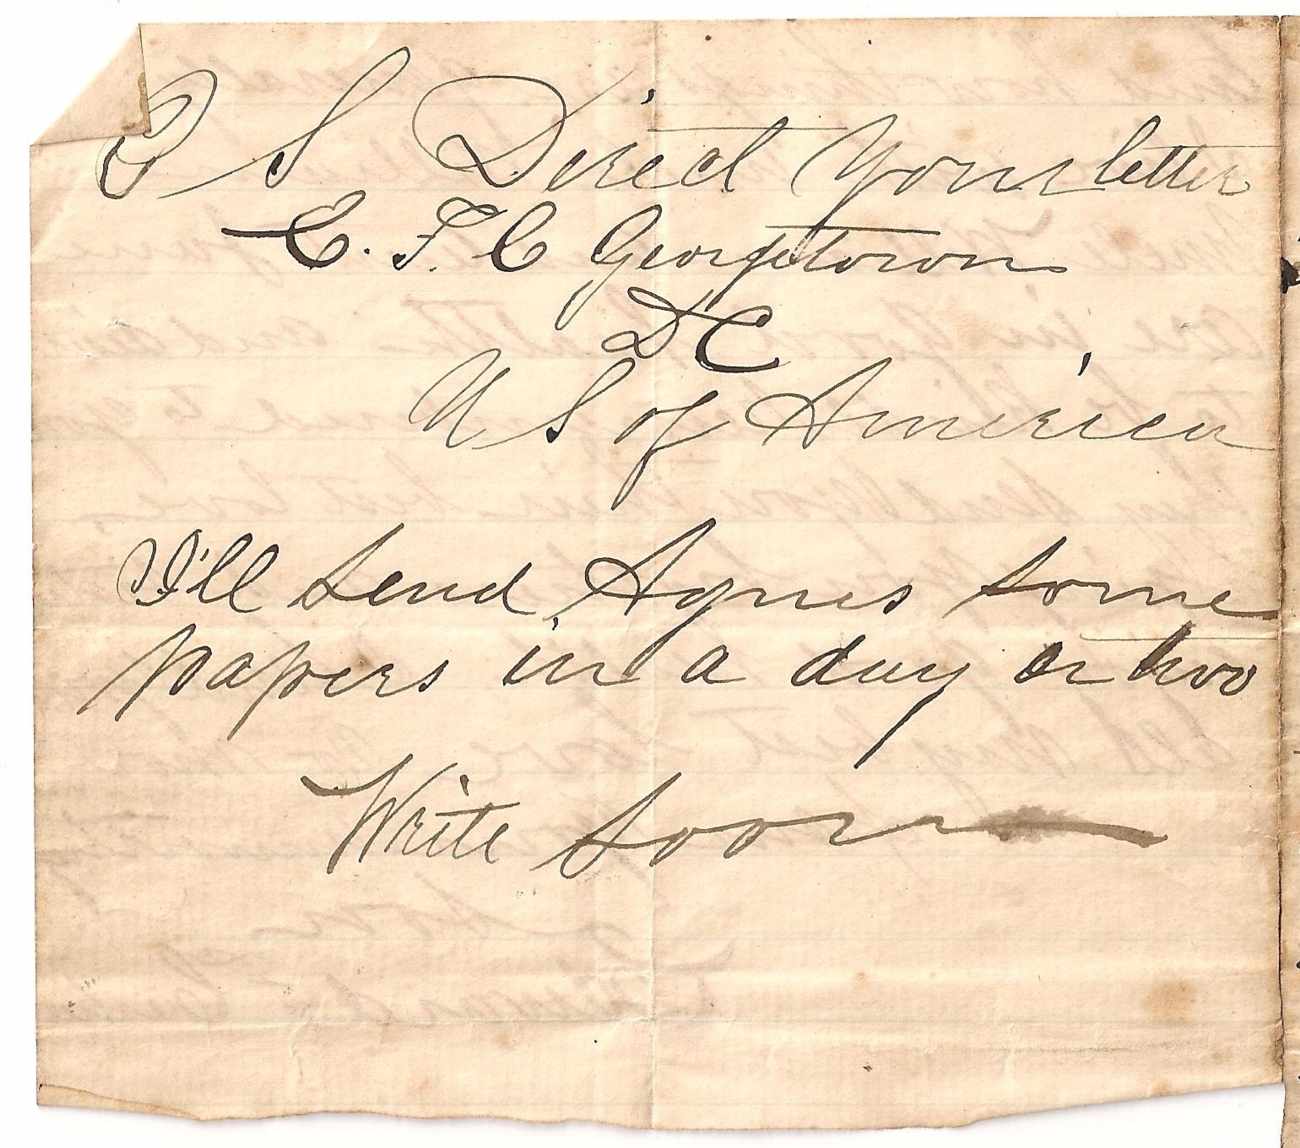 P S Direct your letter
E. F. C Georgetown
D C
U S of America
I'll send Agnes some
papers in a day or two
Write soon